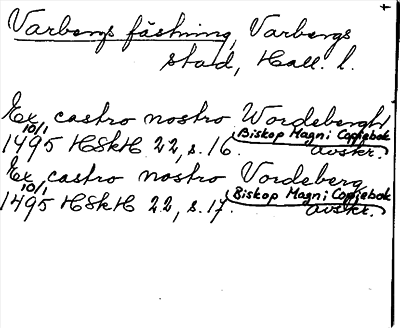 Varbergs fästning, Varbergs
stad, Hall. l.
Ex castro nostro Wordebergh
10/1 1495 HSkH 22, s. 16. (Biskop Magni Copiebok avskr.)
Ex castro nostro Vordeberg
10/1 1495 HSkH 22, s. 17. (Biskop Magni Copiebok avskr.)